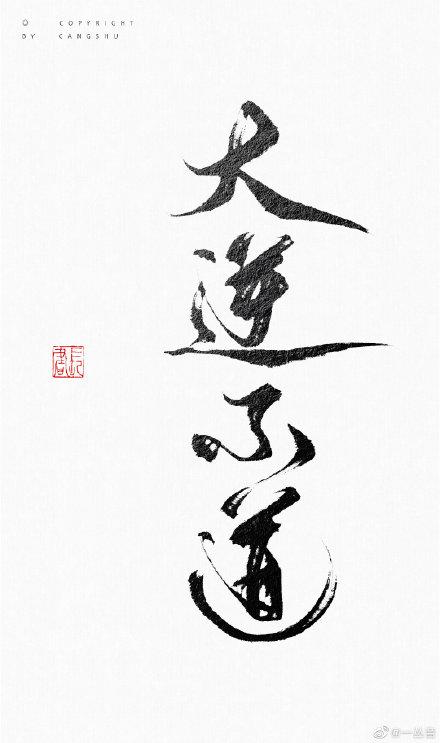 © COPYRIGHT
BY CANGSHU
大逆不道
@一丛音